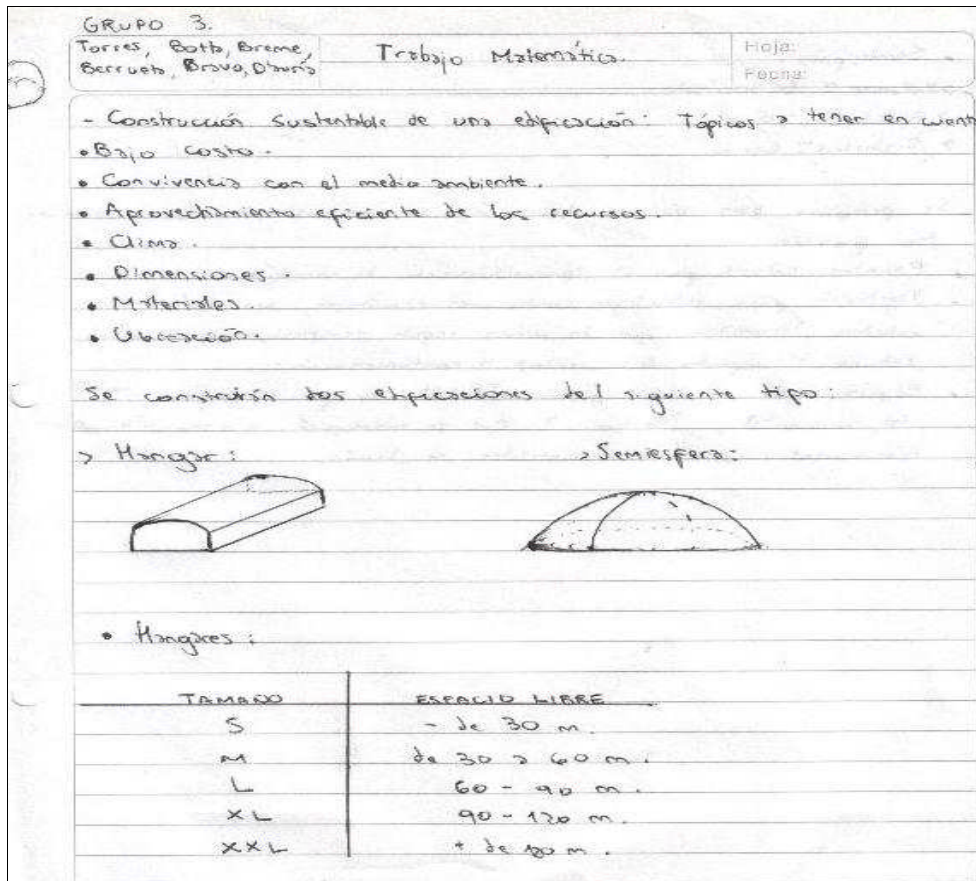 GRUPO 3.
Torres, Botto, Breme,
Berrueto, Bravo, D'auría
Trabajo Matemática.
Hoja:
Fecha:
- Construcción Sustentable de una edificación: Tópicos a tener en cuent
• Bajo costo.
• Convivencia con el medio ambiente.
• Aprovechamiento eficiente de los recursos.
• Clima.
• Dimensiones.
• Materiales
• Ubicación.
Se construirán dos edificaciones del siguiente tipo:
> Hangar:
> Semiesfera:
• Hangares:
TAMAÑO ESPACIO LIBRE
S - de 30 m.
M de 30 a 60 m.
L 60 - 90 m.
XL 90 - 120 m.
XXL + de 120 m.